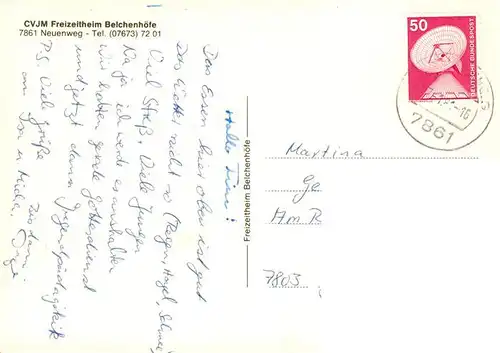 CVJM Freizeitheim Belchenhöfe
7861 Neuenweg - Tel. (07673) 72 01
Hallo
Das Essen hier oben ist gut
das Wetter nicht so (Regen, Hagel, Schnee)
Viel Streß. Viele Jungen
Na ja ich werde es aushalten
Wir hatten gerade Gottesdienst
und jetzt dann Jugendpädagogik
P.S. Viele Grüße
an
Freizeitheim Belchenhöfe
50
DEUTSCHE BUNDESPOST
7861
Martina
Ge
Am R
7803